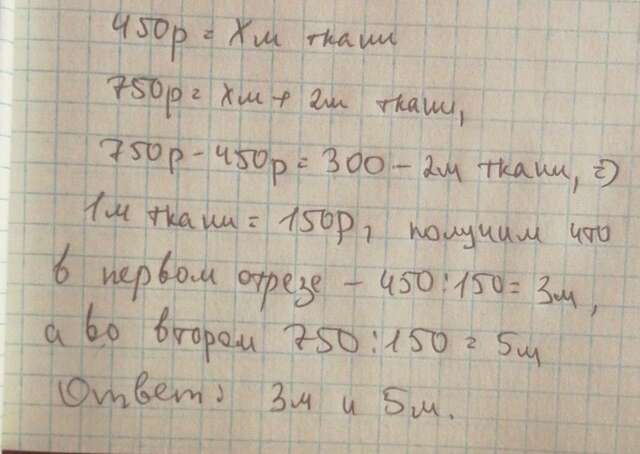 450р = Xм ткани
750р = Xм + 2м ткани,
750р - 450р = 300 - 2м ткани, =>
1м ткани = 150р, получим что
в первом отрезе - 450 : 150 = 3м,
а во втором 750 : 150 = 5м
Ответ: 3м и 5м.